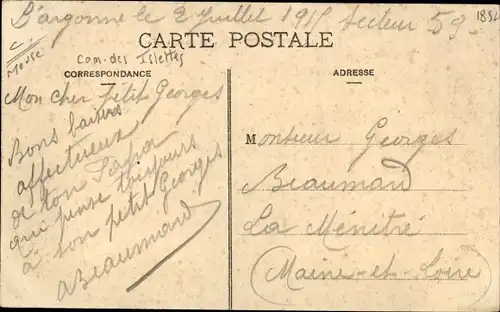 L'argonne le 2 Juillet 1915 Secteur 59
CARTE POSTALE
Meuse
Com. des Islettes
CORRESPONDANCE
Mon cher petit Georges
Bons baisers
affectueux
de ton Papa
qui pense toujours
à son petit Georges
ABeaumard
ADRESSE
Monsieur Georges
Beaumard
La Ménitré
Maine-et-Loire